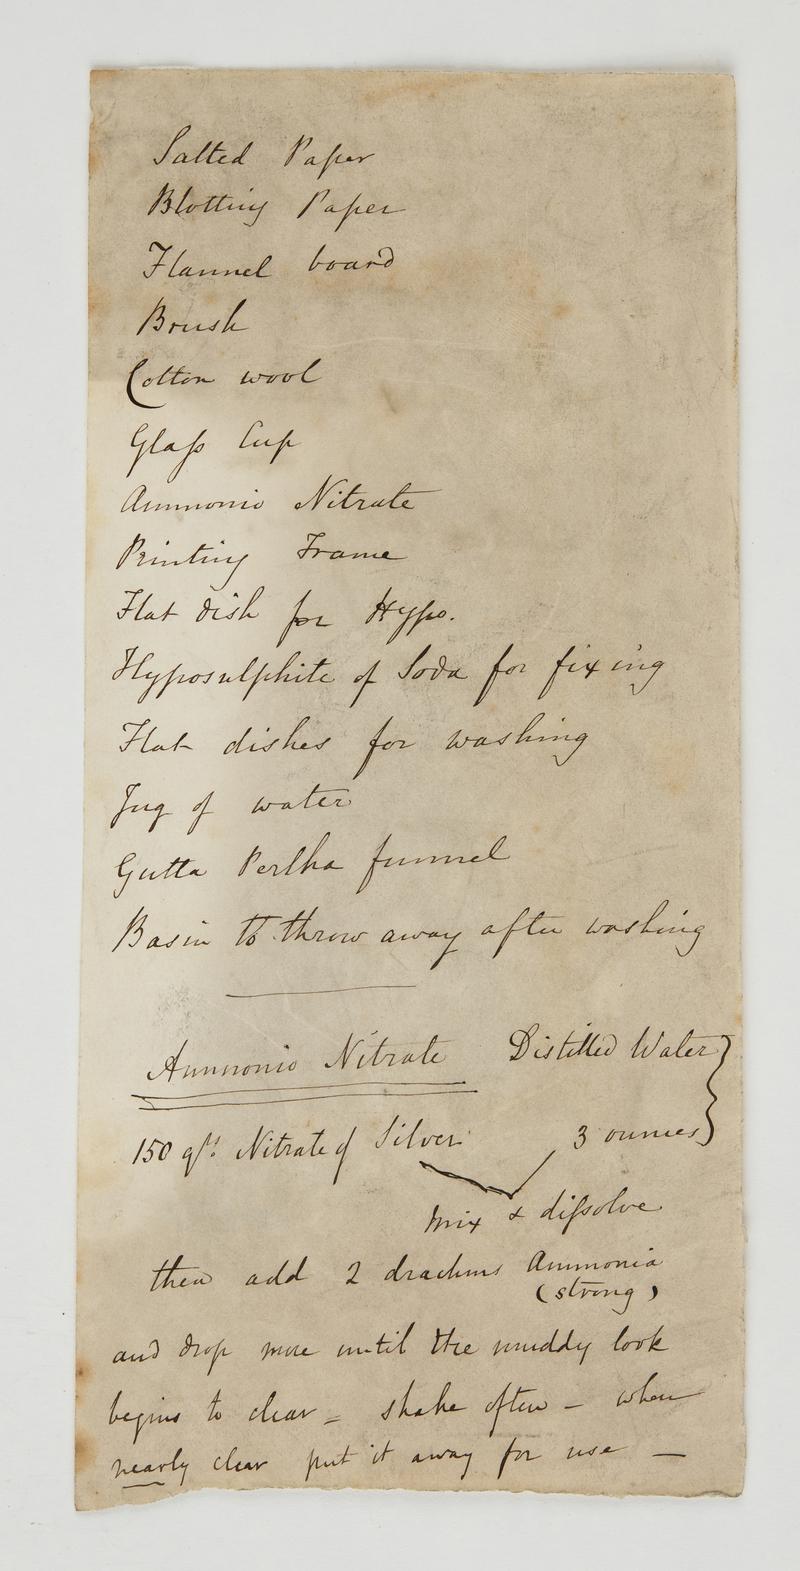 Salted Paper
Blotting Paper
Flannel board
Brush
Cotton wool
Glaſs Cup
Ammonio Nitrate
Printing Frame
Flat dish for Hypo.
Hyposulphite of Soda for fixing
Flat dishes for washing
Jug of water
Gutta Pertha funnel
Basin to throw away after washing
Ammonio Nitrate Distilled Water
150 grs. Nitrate of Silver 3 ounces
mix & diſsolve
then add 2 drachms Ammonia
(strong)
and drop more until the muddy look
begins to clear = shake often – when
nearly clear put it away for use —